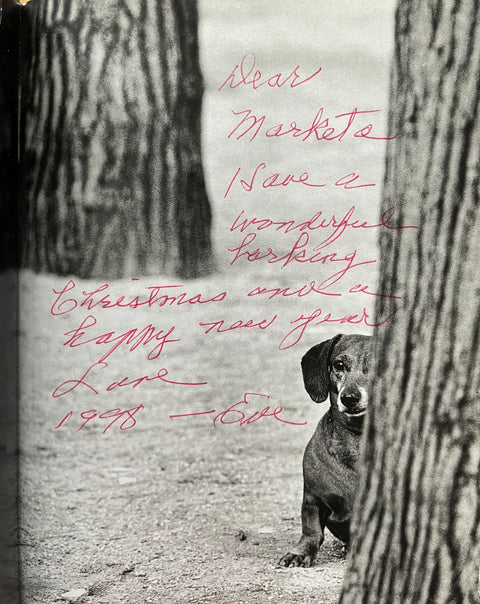 Dear
Markets
Have a
wonderful
barking
Christmas and a
happy new year
Love
1998 — Eve